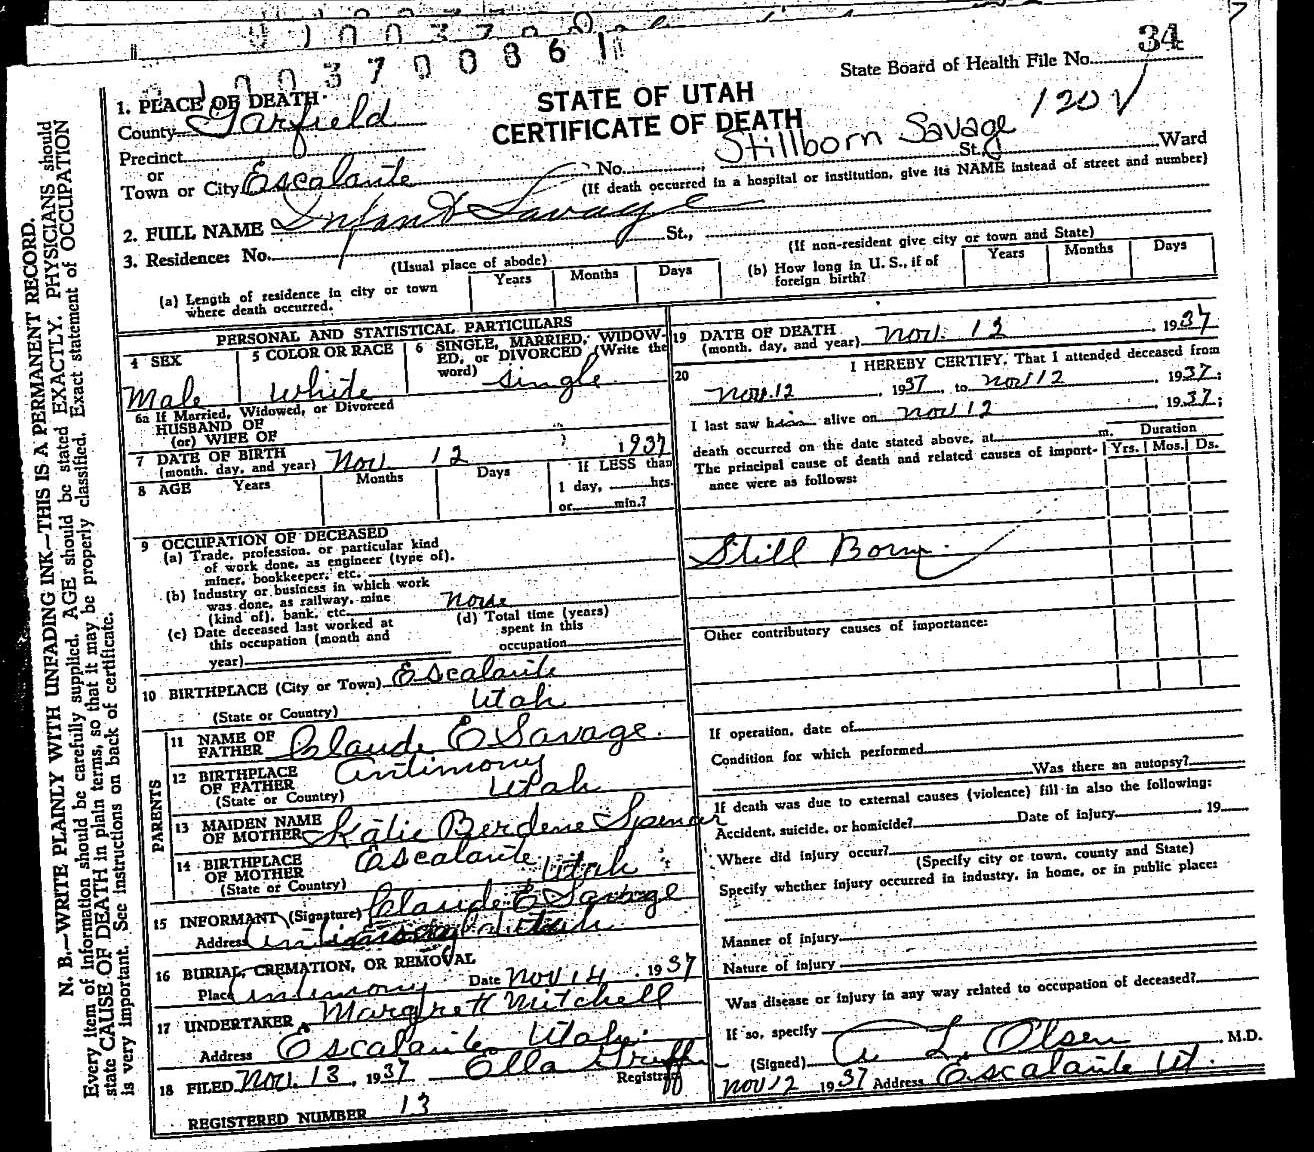 0 1 0 0 3 7 0 0 8 6 1
State Board of Health File No. 34
STATE OF UTAH
CERTIFICATE OF DEATH
1201
1. PLACE OF DEATH
County Garfield
Precinct
or
Town or City Escalante No. Stillborn Savage St., Ward
(If death occurred in a hospital or institution, give its NAME instead of street and number)
2. FULL NAME Infant Savage
3. Residence: No. St.,
(Usual place of abode) (If non-resident give city or town and State)
(a) Length of residence in city or town where death occurred. Years Months Days
(b) How long in U. S., if of foreign birth? Years Months Days
PERSONAL AND STATISTICAL PARTICULARS
4 SEX Male
5 COLOR OR RACE White
6 SINGLE, MARRIED, WIDOWED, or DIVORCED (Write the word) single
6a If Married, Widowed, or Divorced
HUSBAND OF
(or) WIFE OF
7 DATE OF BIRTH
(month, day, and year) Nov 12 1937
8 AGE Years Months Days If LESS than
1 day, hrs.
or min.?
9 OCCUPATION OF DECEASED
(a) Trade, profession, or particular kind
of work done, as engineer (type of),
miner, bookkeeper, etc.
(b) Industry or business in which work
was done, as railway, mine
(kind of), bank, etc. none
(c) Date deceased last worked at
this occupation (month and
year)
(d) Total time (years)
spent in this
occupation
10 BIRTHPLACE (City or Town) Escalante
(State or Country) Utah
PARENTS
11 NAME OF FATHER Claude E Savage
12 BIRTHPLACE OF FATHER Antimony
(State or Country) Utah
13 MAIDEN NAME OF MOTHER Katie Berdene Spencer
14 BIRTHPLACE OF MOTHER Escalante
(State or Country) Utah
15 INFORMANT (Signature) Claude E Savage
Address Antimony Utah
16 BURIAL, CREMATION, OR REMOVAL
Place Antimony Date Nov 14, 1937
17 UNDERTAKER Margrett Mitchell
Address Escalante Utah
18 FILED Nov. 13, 1937 Ella Griffin
Registrar
REGISTERED NUMBER 13
19 DATE OF DEATH
(month, day, and year) Nov. 12, 1937
20 I HEREBY CERTIFY, That I attended deceased from
Nov. 12, 1937 to Nov 12, 1937;
I last saw him alive on Nov 12 1937;
death occurred on the date stated above, at m.
The principal cause of death and related causes of importance were as follows:
Duration
Yrs. Mos. Ds.
Still Born
Other contributory causes of importance:
If operation, date of
Condition for which performed
Was there an autopsy?
If death was due to external causes (violence) fill in also the following:
Accident, suicide, or homicide? Date of injury 19
Where did injury occur?
(Specify city or town, county and State)
Specify whether injury occurred in industry, in home, or in public place:
Manner of injury
Nature of injury
Was disease or injury in any way related to occupation of deceased?
If so, specify
(Signed) A L Olsen, M.D.
Nov 12 1937 Address Escalante Ut.
N. B.—WRITE PLAINLY WITH UNFADING INK—THIS IS A PERMANENT RECORD.
Every item of information should be carefully supplied. AGE should be stated EXACTLY. PHYSICIANS should
state CAUSE OF DEATH in plain terms, so that it may be properly classified. Exact statement of OCCUPATION
is very important. See instructions on back of certificate.